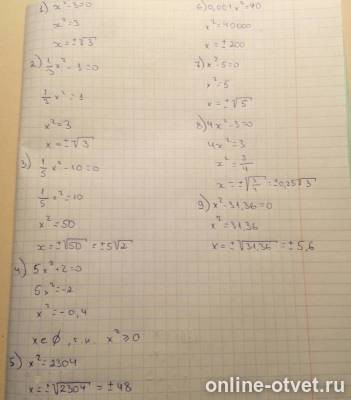 1) x²-3=0
x²=3
x=±√3
2) 1/3 x²-1=0
1/3 x²=1
x²=3
x=±√3
3) 1/5 x²-10=0
1/5 x²=10
x²=50
x=±√50=±5√2
4) 5x²+2=0
5x²=-2
x²=-0,4
x∈∅, т.к. x²≥0
5) x²=2304
x=±√2304=±48
6) 0,001x²=40
x²=40000
x=±200
7) x²-5=0
x²=5
x=±√5
8) 4x²-3=0
4x²=3
x²=3/4
x=±√3/4=±0,25√3
9) x²-31,36=0
x²=31,36
x=±√31,36=±5,6
online-otvet.ru